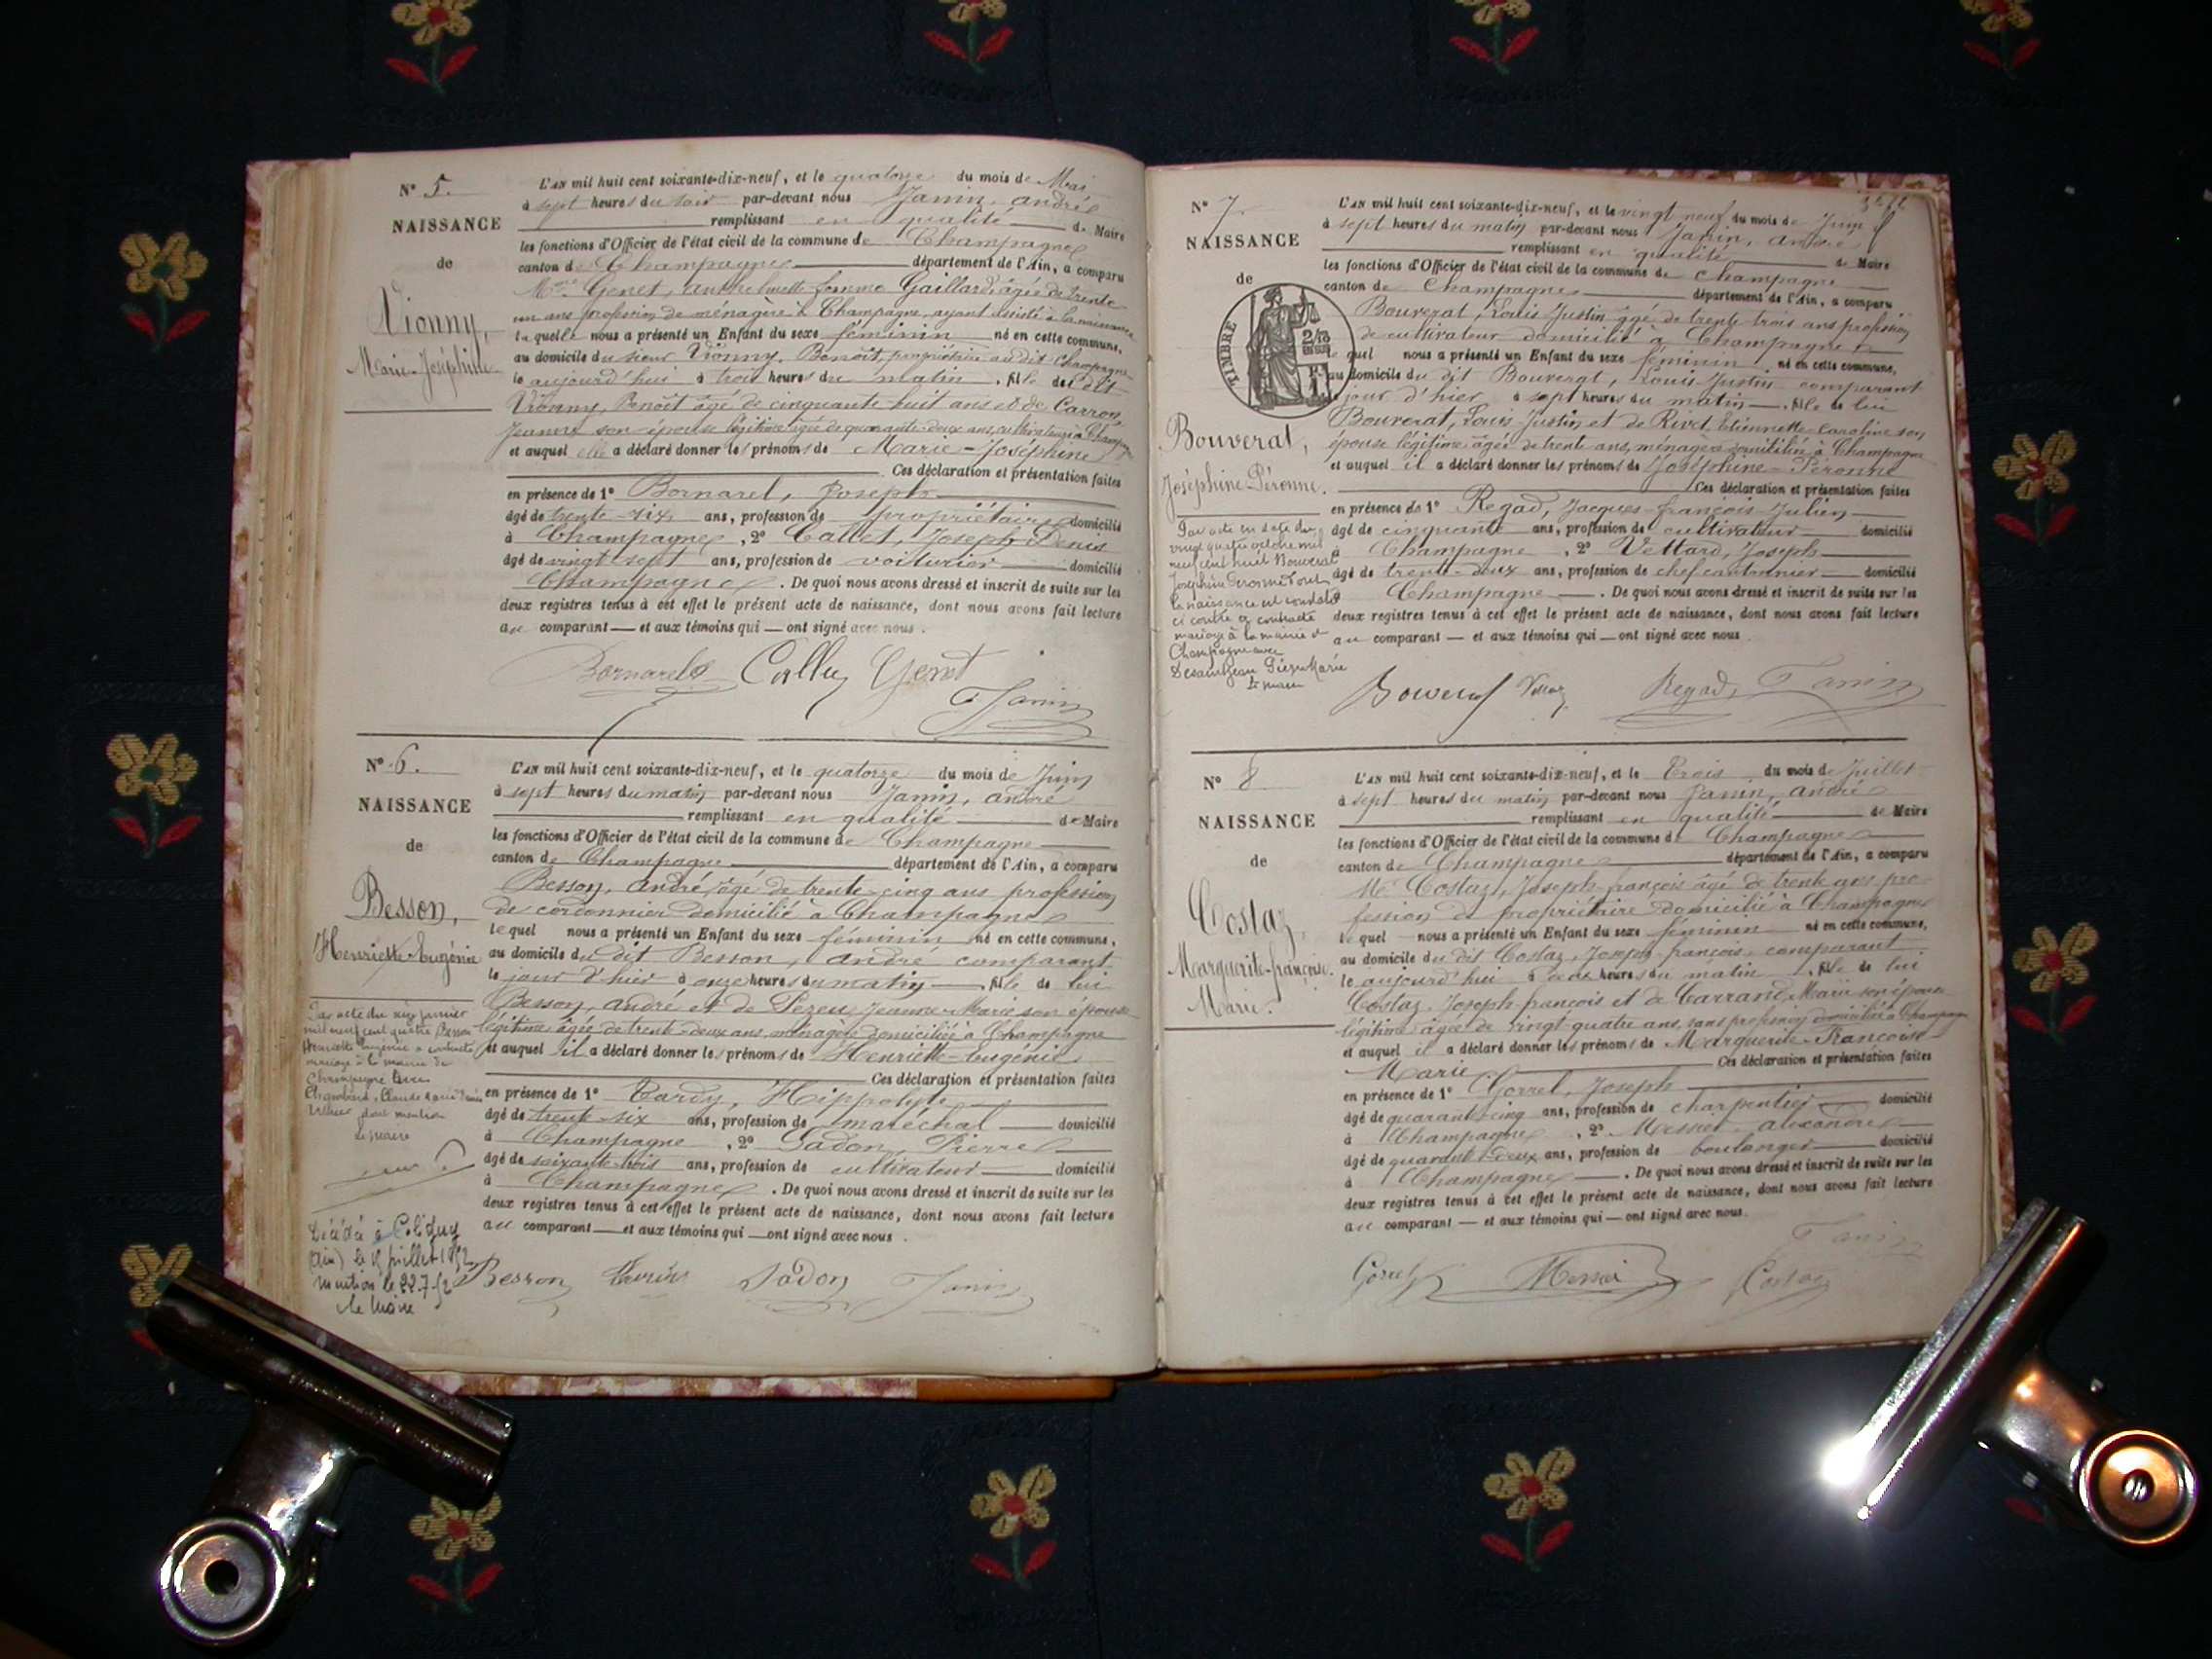 N° 5.
NAISSANCE
de
Vionny,
Marie-Joséphine
L'AN mil huit cent soixante-dix-neuf, et le quatorze du mois de Mai
à sept heures du soir par-devant nous Janin, andré
remplissant en qualité de Maire
les fonctions d'Officier de l'état civil de la commune de Champagne
canton de Champagne département de l'Ain, a comparu
Genet, anthelmette femme Gaillard, âgée de trente
un ans profession de ménagère à Champagne, ayant assisté à la naissance
laquelle nous a présenté un Enfant du sexe féminin né en cette commune,
au domicile du sieur Vionny, Benoît, propriétaire au dit Champagne
le aujourd'hui à trois heures du matin, fille de dit
Vionny, Benoît âgé de cinquante-huit ans et de Carron,
Jeanne son épouse légitime âgée de quarante-deux ans, cultivateurs à Champagne
et auquel elle a déclaré donner les prénoms de Marie-Joséphine
Ces déclaration et présentation faites
en présence de 1° Bornarel, Joseph
âgé de trente-six ans, profession de propriétaire domicilié
à Champagne, 2° Callet, Joseph Denis
âgé de vingt sept ans, profession de voiturier domicilié
Champagne. De quoi nous avons dressé et inscrit de suite sur les
deux registres tenus à cet effet le présent acte de naissance, dont nous avons fait lecture
au comparant — et aux témoins qui — ont signé avec nous.
Bornarel Callet Genet
Janin
N° 6.
NAISSANCE
de
Besson,
Henriette-Eugénie
Par acte du six janvier
mil neuf cent quatre Besson
Henriette Eugénie a contracté
mariage à la mairie de
Champagne avec
Claude Marie
dont mention
Le Maire
Décédée à Coligny
(Ain) le 15 juillet 1952
mention le 22-7-52
le Maire
L'AN mil huit cent soixante-dix-neuf, et le quatorze du mois de Juin
à sept heures du matin par-devant nous Janin, andré
remplissant en qualité de Maire
les fonctions d'Officier de l'état civil de la commune de Champagne
canton de Champagne département de l'Ain, a comparu
Besson, andré âgé de trente-cinq ans profession
de cordonnier domicilié à Champagne
lequel nous a présenté un Enfant du sexe féminin né en cette commune,
au domicile du dit Besson, andré comparant
le jour d'hier à onze heures du matin, fille de lui
Besson, andré et de Pezeu Jeanne-Marie son épouse
légitime âgée de trente-deux ans, ménagère domiciliée à Champagne
et auquel il a déclaré donner les prénoms de Henriette-Eugénie
Ces déclaration et présentation faites
en présence de 1° Tardy, Hippolyte
âgé de trente-six ans, profession de maréchal domicilié
à Champagne, 2° Sadon, Pierre
âgé de soixante-trois ans, profession de cultivateur domicilié
à Champagne. De quoi nous avons dressé et inscrit de suite sur les
deux registres tenus à cet effet le présent acte de naissance, dont nous avons fait lecture
au comparant — et aux témoins qui — ont signé avec nous.
Besson Sadon Janin
N° 7.
NAISSANCE
de
TIMBRE
Bouverat,
Joséphine-Péronne.
Par acte en date du
vingt quatre octobre mil
neuf cent huit Bouverat
Joséphine Péronne dont
la naissance est constatée
ci contre a contracté
mariage à la mairie de
Champagne avec
Marie
Le Maire
L'AN mil huit cent soixante-dix-neuf, et le vingt neuf du mois de Juin
à sept heures du matin par-devant nous Janin, andré
remplissant en qualité de Maire
les fonctions d'Officier de l'état civil de la commune de Champagne
canton de Champagne département de l'Ain, a comparu
Bouverat, Louis Justin âgé de trente-trois ans profession
de cultivateur domicilié à Champagne
lequel nous a présenté un Enfant du sexe féminin né en cette commune,
au domicile du dit Bouverat, Louis Justin comparant
jour d'hier à sept heures du matin, fille de lui
Bouverat, Louis Justin et de Rivet, Etiennette-Caroline son
épouse légitime âgée de trente ans, ménagère domiciliée à Champagne
et auquel il a déclaré donner les prénoms de Joséphine-Péronne
Ces déclaration et présentation faites
en présence de 1° Regad, Jacques-françois Julien
âgé de cinquante ans, profession de cultivateur domicilié
à Champagne, 2° Vettard, Joseph
âgé de trente-deux ans, profession de chef cantonnier domicilié
Champagne. De quoi nous avons dressé et inscrit de suite sur les
deux registres tenus à cet effet le présent acte de naissance, dont nous avons fait lecture
au comparant — et aux témoins qui — ont signé avec nous.
Bouverat Regad, Janin
N° 8
NAISSANCE
de
Costaz,
Marguerite-françoise.
Marie.
L'AN mil huit cent soixante-dix-neuf, et le Trois du mois de Juillet
à sept heures du matin par-devant nous Janin, andré
remplissant en qualité de Maire
les fonctions d'Officier de l'état civil de la commune de Champagne
canton de Champagne département de l'Ain, a comparu
Mr Costaz, Joseph-françois âgé de trente ans pro-
fession de propriétaire domicilié à Champagne
lequel nous a présenté un Enfant du sexe féminin né en cette commune,
au domicile du dit Costaz, Joseph françois, comparant
le aujourd'hui à deux heures du matin, fille de lui
Costaz, Joseph-françois et de Carrand, Marie son épouse
légitime âgée de vingt-quatre ans, sans profession domiciliée à Champagne
et auquel il a déclaré donner les prénoms de Marguerite-Françoise
Marie Ces déclaration et présentation faites
en présence de 1° Gorrel, Joseph
âgé de quarante-cinq ans, profession de charpentier domicilié
à Champagne, 2° alexandre
âgé de quarante-deux ans, profession de boulanger domicilié
à Champagne. De quoi nous avons dressé et inscrit de suite sur les
deux registres tenus à cet effet le présent acte de naissance, dont nous avons fait lecture
au comparant — et aux témoins qui — ont signé avec nous.
Janin
Costaz